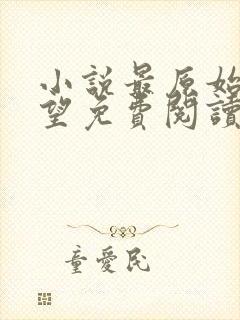 小説最原始
望免費閱讀
童愛民